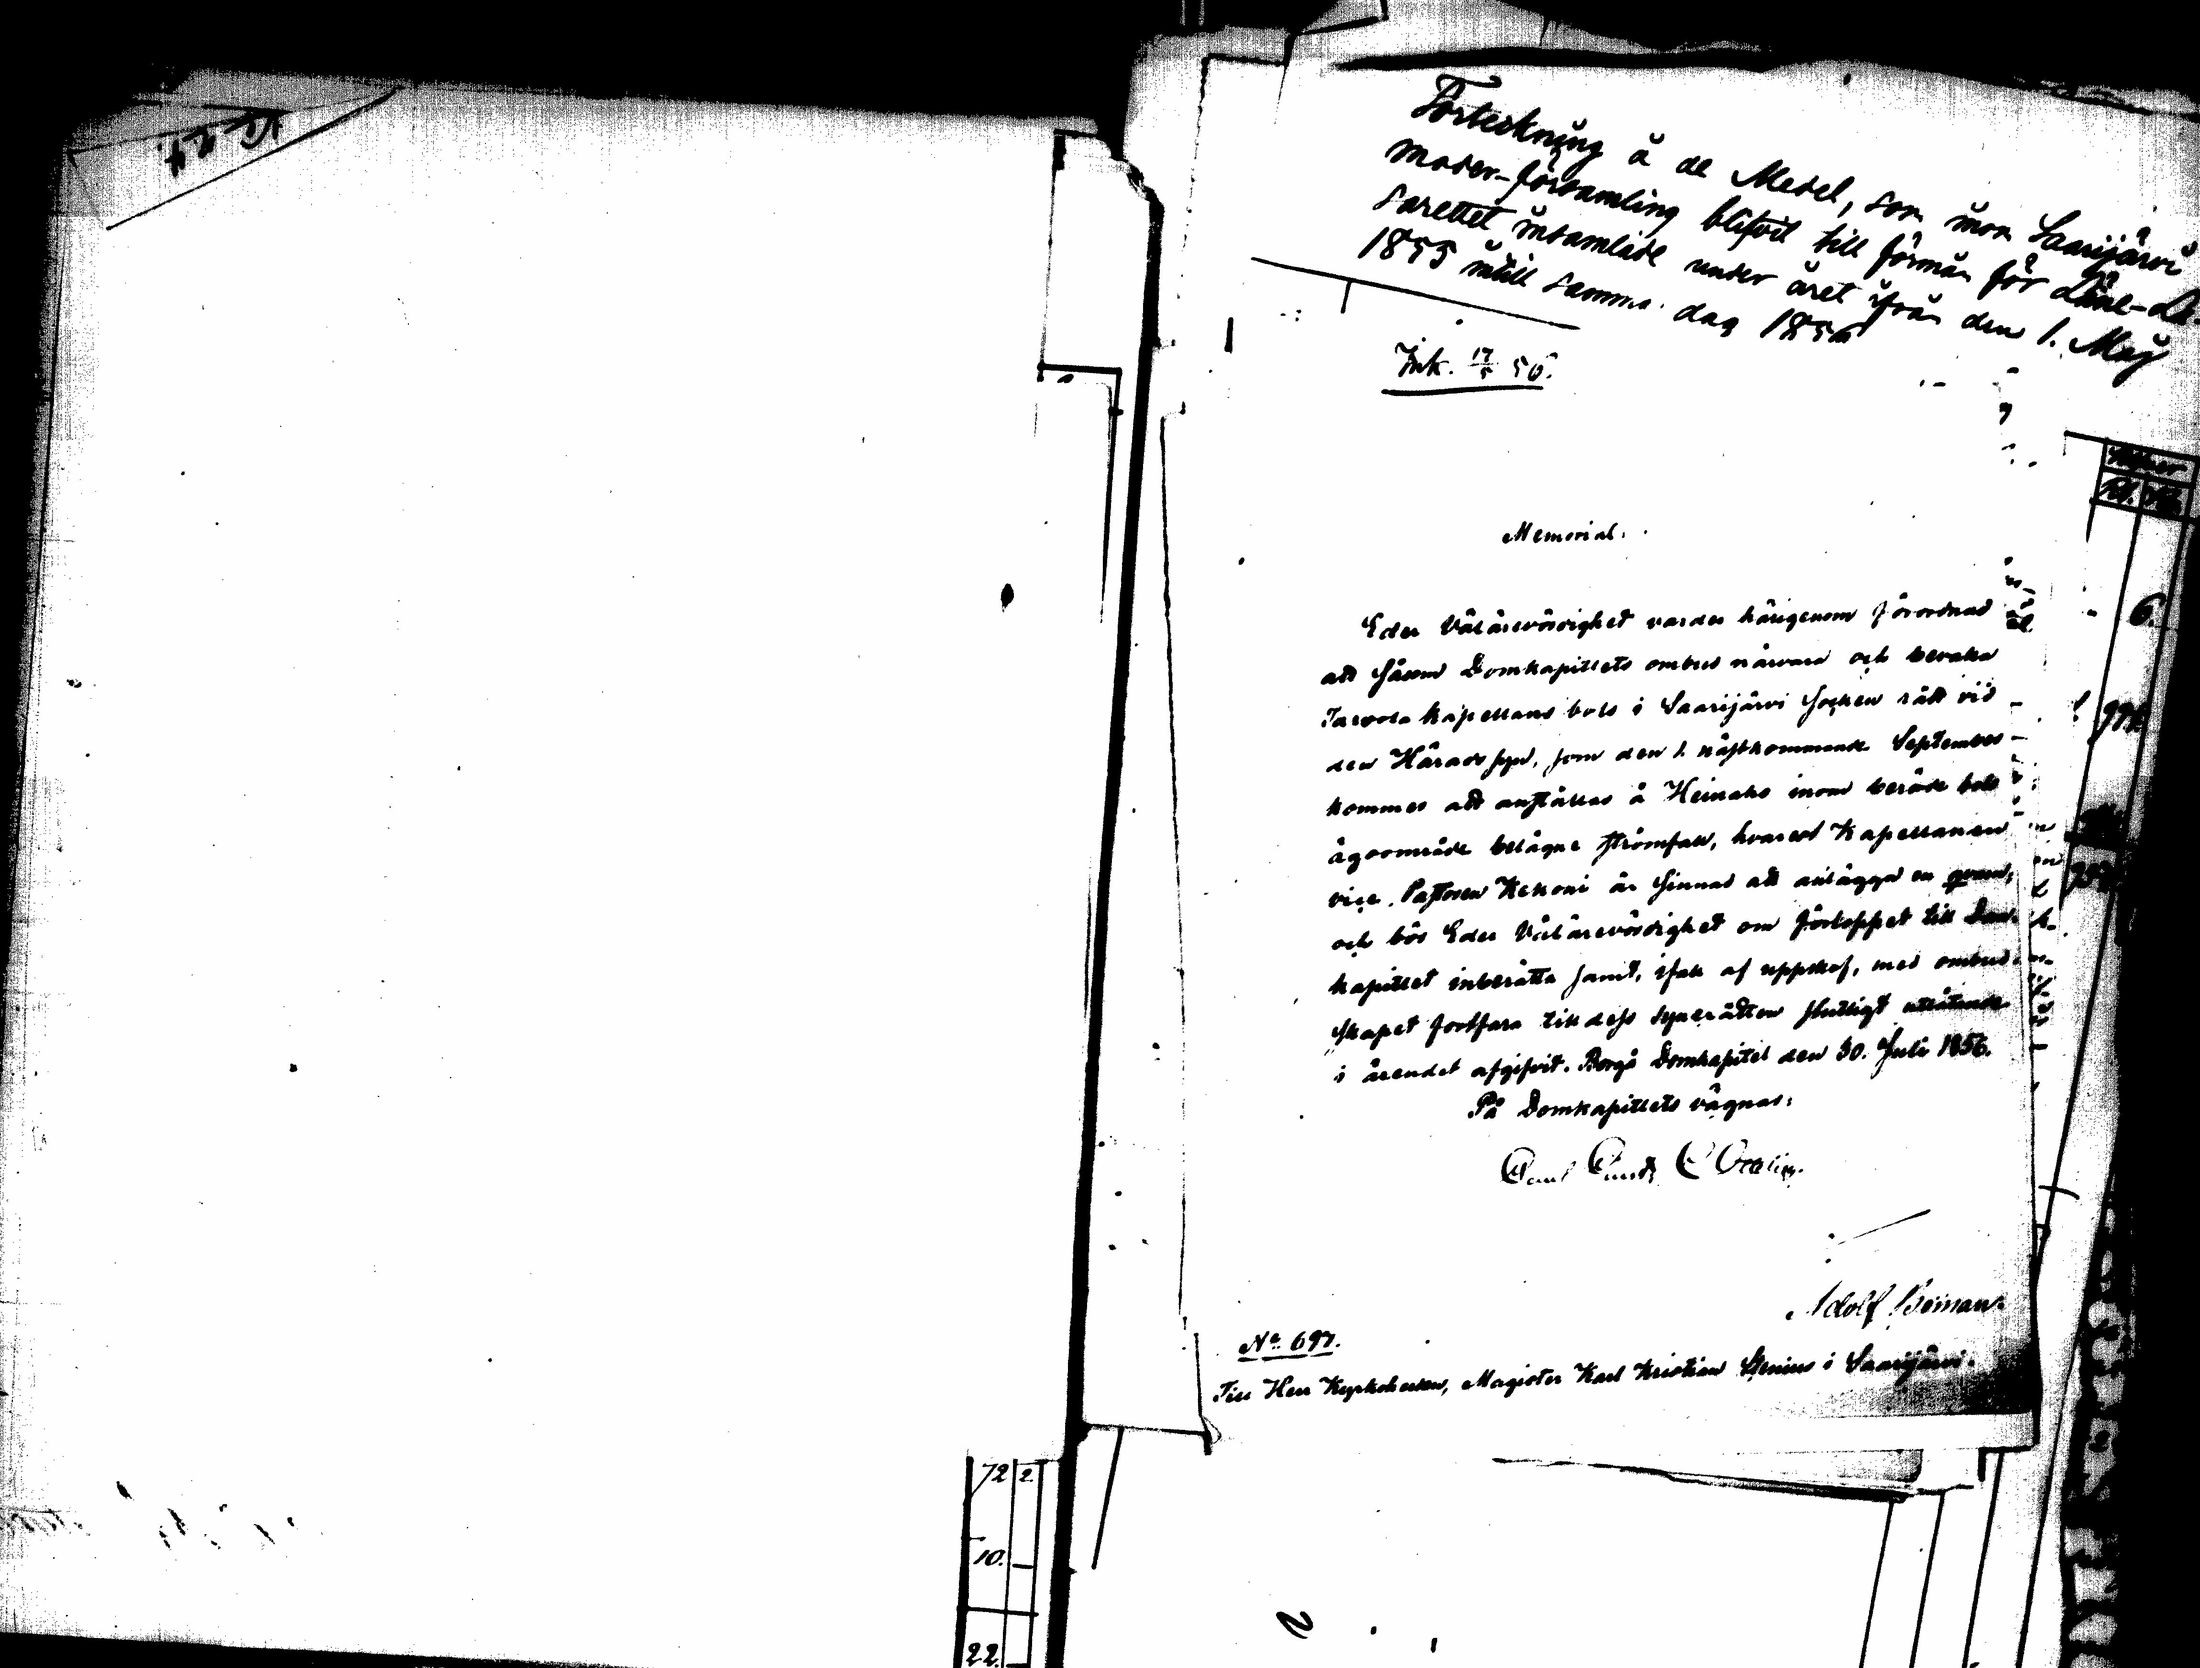 No 24.
Förteckning å de Medel, som inom Saarijärvi
moder-församling blifvit till förmån för Läne-La-
sarettet insamlade under året ifrån den 1. Maj
1855 intill samma dag 1856
Ink. 17/5 56.
Memorial.
Eder Välärevördighet varder härigenom förordnad
att såsom Domkapitlets ombud närvara och bevaka
Tarvola kapellans bols i Saarijärvi Socken rätt vid
den Härads syn, som den 1 nästkommande September
kommer att anställas å Heinaho inom berörde bols
ägoområde belägne strömfall, hvarest Kapellanen
vice Pastoren Kekoni är sinnad att anlägga en qvarn,
och bör Eder Välärevördighet om förloppet till Dom-
kapitlet inberätta samt, ifall af uppskof, med ombud-
skapet fortfara till dess synerätten slutligt utlåtande
i ärendet afgifvit. Borgå Domkapitel den 30. Juli 1856.
På Domkapitlets vägnar:
Adolf
No 697.
Till Herr Kyrkoherden, Magister Karl Kristian Stenius i Saarijärvi.
6.
72 2.
10. —
22.